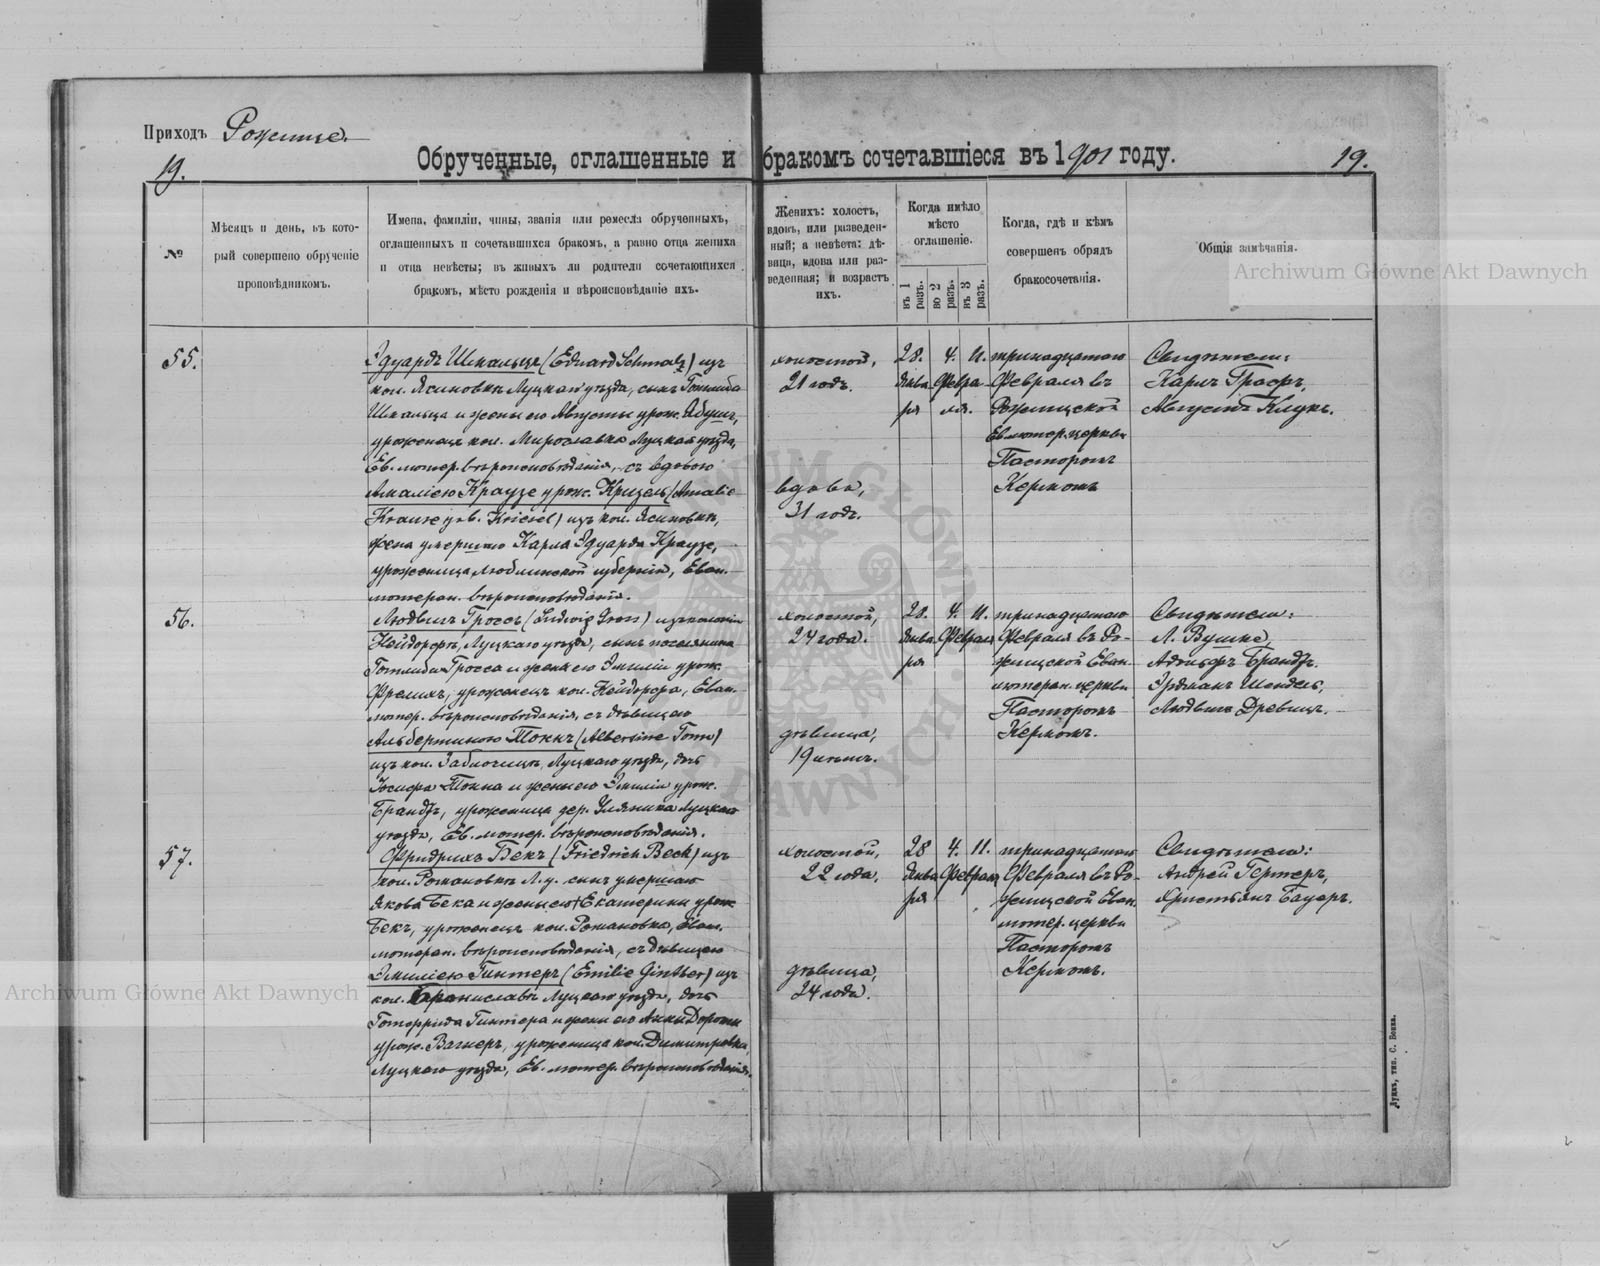 Приходъ Рожище.
19.
Обрученные, оглашенные и бракомъ сочетавшіеся въ 1901 году.
19.
№
Мѣсяцъ и день, въ кото-
рый совершено обрученіе
проповѣдникомъ.
Имена, фамиліи, чины, званія или ремесла обрученныхъ,
оглашенныхъ и сочетавшихся бракомъ, а равно отца жениха
и отца невѣсты; въ живыхъ ли родители сочетающихся
бракомъ, мѣсто рожденія и вѣроисповѣданіе ихъ.
Женихъ: холостъ,
вдовъ, или разведен-
ный; а невѣста: дѣ-
вица, вдова или раз-
веденная; и возрастъ
ихъ.
Когда имѣло
мѣсто
оглашеніе.
въ 1 разъ.
во 2 разъ.
въ 3 разъ.
Когда, гдѣ и кѣмъ
совершенъ обрядъ
бракосочетанія.
Общія замѣчанія.
Archiwum Główne Akt Dawnych
55.
Эдуардъ Шмальцъ (Eduard Schmalz) изъ
кол. Ясиновки Луцкаго уѣзда, сынъ Готлиба
Шмальца и жены его Августы урож. Ябушъ,
уроженецъ кол. Мирославка Луцкаго уѣзда,
Ев. лютер. вѣроисповѣданія, съ вдовою
Амаліею Краузе урож. Кризель (Amalie
Krause geb. Kriesel) изъ кол. Ясиновки,
жена умершаго Карла Эдуарда Краузе,
уроженица Люблинской губерніи, Еван.
лютеран. вѣроисповѣданія.
холостой,
21 годъ.
вдова,
31 годъ.
28. 4. 11.
Янва Февра
ря ля.
тринадцатаго
Февраля въ
Рожищской
Ев. лютер. церкви
Пасторомъ
Керномъ
Свидѣтели:
Карлъ Гросъ,
Августъ Клукъ.
56.
Людвигъ Гроссъ (Ludwig Gross) изъ колоніи
Нейдорфъ, Луцкаго уѣзда, сынъ поселянина
Готлиба Гросса и жены его Эмиліи урож.
Фрелихъ, уроженецъ кол. Нейдорфа, Еван.
лютер. вѣроисповѣданія, съ дѣвицею
Альбертиною Тоннъ (Albertine Tonn)
изъ кол. Заболотцы, Луцкаго уѣзда, дочь
Іосифа Тонна и жены его Эмиліи урож.
Брандтъ, уроженица дер. Уляники Луцкаго
уѣзда, Ев. лютер. вѣроисповѣданія.
холостой,
24 года.
дѣвица,
19 лѣтъ.
28. 4. 11.
Янва Февраля
ря
тринадцатаго
Февраля въ Ро-
жищской Еван.
лютеран. церкви
Пасторомъ
Керномъ.
Свидѣтели:
Л. Вушке,
Адольфъ Брандтъ.
Эрдманъ Шендель,
Людвигъ Древицъ.
57.
Фридрихъ Бекъ (Friedrich Beck) изъ
кол. Романовки Л. у. сынъ умершаго
Якова Бека и жены его Екатерины урож.
Бекъ, уроженецъ кол. Романовка, Еван.
лютеран. вѣроисповѣданія, съ дѣвицею
Эмиліею Гинтеръ (Emilie Ginther) изъ
кол. Брониславки Луцкаго уѣзда, дочь
Готфрида Гинтера и жены его Анны Доротеи
урож. Вагнеръ, уроженица кол. Димитровка,
Луцкаго уѣзда, Ев. лютер. вѣроисповѣданія.
холостой,
22 года.
дѣвица,
24 года.
28 4. 11.
Янва Февраля
ря
тринадцатаго
Февраля въ Ро-
жищской Еван.
лютер. церкви
Пасторомъ
Керномъ.
Свидѣтели:
Андрей Гертеръ,
Христьянъ Бауеръ.
Archiwum Główne Akt Dawnych
Луцкъ, тип. С. Бонка.